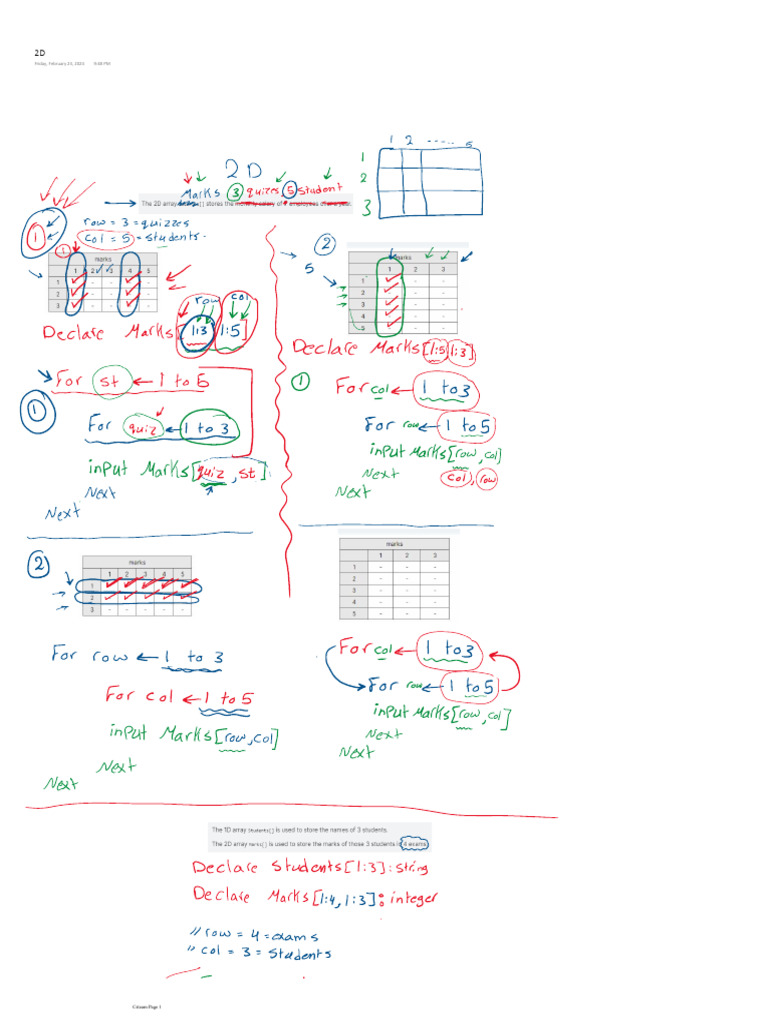 2D
Friday, February 23, 2024 9:48 PM
2D
Marks 3 quizes, 5 student
The 2D array [] stores the monthly salary of employees of one year.
1 2 ..... 5
1
2
3
1
row = 3 = quizzes
col = 5 = students.
1
marks
1 2 3 4 5
1 - - -
2 - - -
3 - - -
row col
Declare Marks[1:3 1:5]
For st ← 1 to 5
1
For quiz ← 1 to 3
input Marks[quiz, st]
Next
Next
2
5
marks
1 2 3
1 - -
2 - -
3 - -
4 - -
5 - -
Declare Marks[1:5 1:3]
1
For col ← 1 to 3
For row ← 1 to 5
input Marks[row, col]
Next
col, row
Next
2
marks
1 2 3 4 5
1
2
3 - - - - -
For row ← 1 to 3
For col ← 1 to 5
input Marks[row, col]
Next
Next
marks
1 2 3
1 - - -
2 - - -
3 - - -
4 - - -
5 - - -
For col ← 1 to 3
For row ← 1 to 5
input Marks[row, col]
Next
Next
The 1D array Students[] is used to store the names of 3 students.
The 2D array Marks[] is used to store the marks of those 3 students in 4 exams.
Declare Students[1:3]: string
Declare Marks[1:4, 1:3]: integer
// row = 4 = exams
// col = 3 = Students
C4cam Page 1